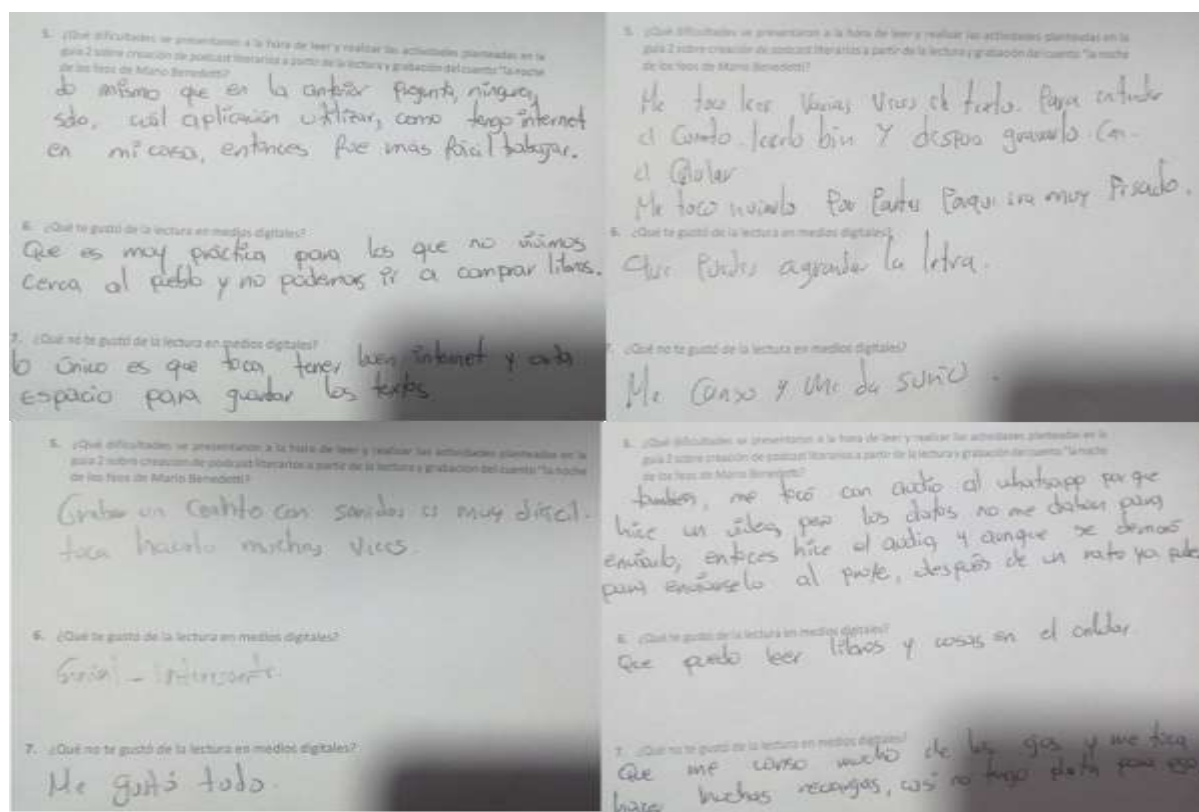 5. ¿Qué dificultades se presentaron a la hora de leer y realizar las actividades planteadas en la
guía 2 sobre creación de podcast literarios a partir de la lectura y grabación del cuento "la noche
de los feos de Mario Benedetti?
lo mismo que en la anterior pregunta, ninguna,
solo, cuál aplicación utilizar, como tengo internet
en mi casa, entonces fue más fácil trabajar.
6. ¿Qué te gustó de la lectura en medios digitales?
Que es muy práctica para los que no vivimos
cerca al pueblo y no podemos ir a comprar libros.
7. ¿Qué no te gustó de la lectura en medios digitales?
lo único es que toca tener buen internet y
espacio para guardar los textos
5. ¿Qué dificultades se presentaron a la hora de leer y realizar las actividades planteadas en la
guía 2 sobre creación de podcast literarios a partir de la lectura y grabación del cuento "la noche
de los feos de Mario Benedetti?
Me toco leer varias veces el texto. Para entender
el Cuento. leerlo bien Y despues gravarlo Con
el Celular
Me toco enviarlo Por Partes Porque era muy Pesado.
6. ¿Qué te gustó de la lectura en medios digitales?
Que Puedes agrandar la letra.
7. ¿Qué no te gustó de la lectura en medios digitales?
Me Canso y me da sueño.
5. ¿Qué dificultades se presentaron a la hora de leer y realizar las actividades planteadas en la
guía 2 sobre creación de podcast literarios a partir de la lectura y grabación del cuento "la noche
de los feos de Mario Benedetti?
Grabar un Cuento con sonidos es muy dificil.
toca hacerlo muchas veces.
6. ¿Qué te gustó de la lectura en medios digitales?
Genial - interesante.
7. ¿Qué no te gustó de la lectura en medios digitales?
Me gustó todo.
5. ¿Qué dificultades se presentaron a la hora de leer y realizar las actividades planteadas en la
guía 2 sobre creación de podcast literarios a partir de la lectura y grabación del cuento "la noche
de los feos de Mario Benedetti?
tambien, me tocó con audio al whatsapp porque
hice un video, pero los datos no me daban para
enviarlo, entonces hice el audio y aunque se demoró
para enviárselo al profe, después de un rato ya pude
6. ¿Qué te gustó de la lectura en medios digitales?
Que puedo leer libros y cosas en el celular
7. ¿Qué no te gustó de la lectura en medios digitales?
Que me canso mucho de los ojos y me toca
hacer muchas recargas, casi no tengo plata para eso